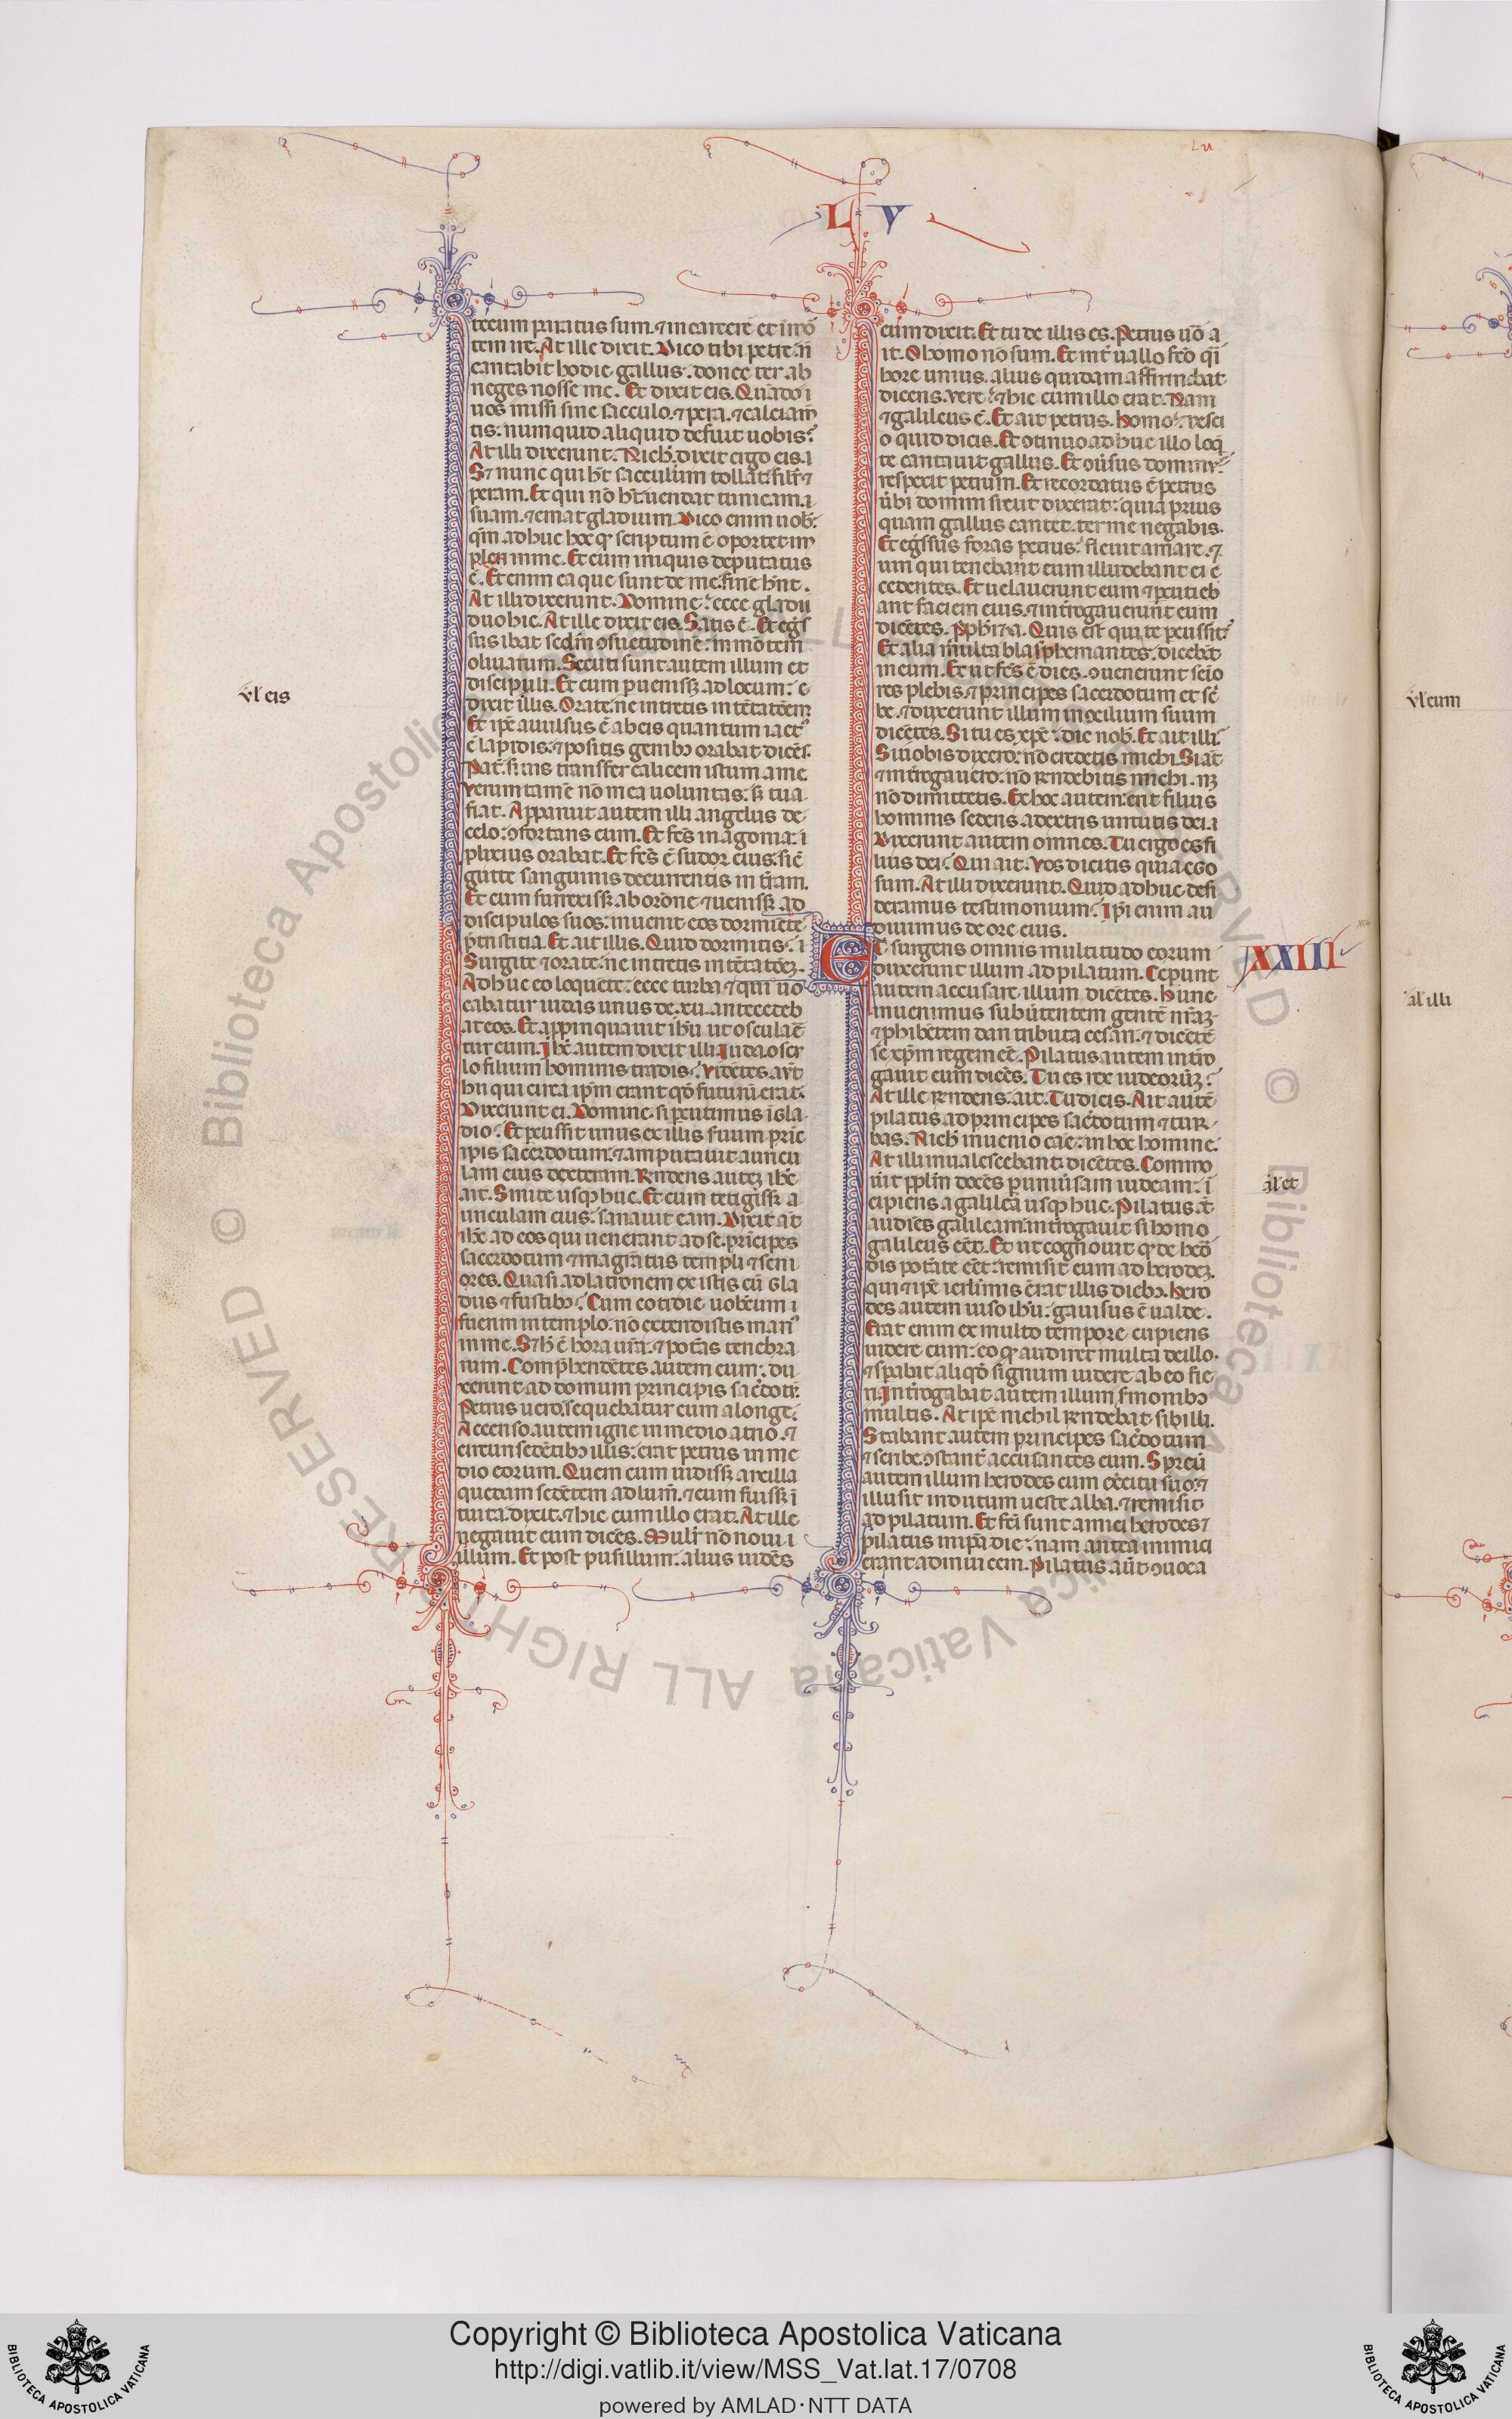 L V
tecum paratus sum. ⁊ in carcerē et in mō
tem ire. At ille dixit. Dico tibi petre. nō
cantabit hodie gallus. donec ter ab
neges nosse me. Et dixit eis. Quādo
uos missi sine sacculo. ⁊ pera. ⁊ calciam̄
tis. numquid aliquid defuit uobis.
At illi dixerunt. Nich̄. dixit ergo eis.
S; nunc qui h̄t sacculum tollat. silr̄ ⁊
peram. Et qui nō h̄t. uendat tunicam
suam. ⁊ emat gladium. Dico enim uob̄.
qm̄ adhuc hoc q̄ scriptum ē oportet im
pleri in me. Et cum iniquis deputatus
ē. Et enim ea que sunt de me. finē hn̄t.
At illi dixerunt. Domine. ecce gladii
duo hic. At ille dixit eis. Satis ē. Et egs̄
sus ibat scd̄m ↄsuetudinē. in mōtem
oliuarum. Secuti sunt autem illum et
discipuli. Et cum ꝑuenisꝫ ad locum.
dixit illis. Orate. ne intretis in tētatōem
Et ip̄e auulsus ē ab eis quantum iact᷒
ē lapidis. ⁊ positis genibꝫ orabat dicēs.
Pat̄. si uis transfer calicem istum a me
verum tam̄ nō mea uoluntas. sꝫ tua
fiat. Apparuit autem illi angelus de
celo. ↄfortans eum. Et fcs̄ in agonia.
plixius orabat. Et fcs̄ ē sudor eius. sic̄
gutte sanguinis decurrentis in tr̄am.
Et cum surrexisꝫ ab orōne ⁊ uenisꝫ ad
discipulos suos. inuenit eos dormiente
p̄ tristitia. Et ait illis. Quid dormitis.
Surgite ⁊ orate. ne intretis in tētatōeꝫ.
Adhuc eo loquēte. ecce turba ⁊ qui uo
cabatur iudas unus de xii. antecedeb
at eos. Et appinquauit ih̄u ut oscularē
tur eum. Ih̄c autem dixit illi. Iuda. oscu
lo filium hominis tradis. Vidētes aut̄
hii qui circa ip̄m erant qd̄ futurū erat.
Dixerunt ei. Domine. si ꝑcutimus ī gla
dio. Et ꝑcussit unus ex illis suum prīc
ipis sacerdotum. ⁊ amputauit auricu
lam eius dexteram. Rn̄dens auteꝫ ih̄c
ait. Sinite usqꝫ huc. Et cum tetigisꝫ a
uriculam eius. sanauit eam. Dixit at̄
ih̄c ad eos qui uenerant ad se. prīcipes
sacerdotum ⁊ magr̄atus templi ⁊ seni
ores. Quasi ad latronem existis cū gla
diis ⁊ fustibꝫ. Cum cotidie uobcum
fuerim in templo. nō extendistis man᷒
in me. S; h̄ ē hora ur̄a. ⁊ pot̄as tenebra
rum. Comp̄hendētes autem eum. du
xerunt ad domum principis sac̄doti.
Petrus uero. sequebatur eum a longe.
Accenso autem igne in medio atrio. ⁊
circum sedētibꝫ illis. erat petrus in me
dio eorum. Quem cum uidisꝫ ancilla
quedam sedētem ad lum̄. ⁊ eum fuisꝫ ī
tuita. dixit. ⁊ hic cum illo erat. At ille
negauit eum dicēs. Mulr̄ nō noui
illum. Et post pusillum. alius uidēs
eum dixit. Et tu de illis es. Petrus uō a
it. O homo nō sum. Et int̄ uallo fcō qi̅
hore unius. alius quidam affirmabat
dicens. vere. ⁊ hic cum illo erat. Nam
⁊ galileus ē. Et ait petrus. Homo. nesci
o quid dicis. Et ↄtinuo adhuc illo loq̄
te cantauit gallus. Et ↄūsus dominꝰ
respexit petrum. Et recordatus ē petrus
ūbi domini sicut dixerat. quia prius
quam gallus cantet. ter me negabis.
Et egs̄sus foras petrus. fleuit amare. ⁊
uiri qui tenebant eum illudebant ei ē
cedentes. Et uelauerunt eum ⁊ ꝑcutieb
ant faciem eius. ⁊ intr̄ogauerunt eum
dicētes. Pphīza. Quis est qui te ꝑcussit.
Et alia multa blasphemantes. dicebāt
in eum. Et ut fcs̄ ē dies. ↄuenerunt senīo
res plebis. ⁊ principes sacerdotum et sc̄
be. ⁊ duxerunt illum in ↄcilium suum
dicētes. Si tu es xp̄c. dic nob̄. Et ait illi.
Si uobis dixero. nō credetis michi. Si at̄
⁊ intr̄ogauero. nō rn̄debitis michi. nꝫ
nō dimittetis. Ex hoc autem. erit filius
hominis sedens a dextris uirtutis dei.
Dixerunt autem omnes. Tu ergo es fi
lius dei. Qui ait. Vos dicitis quia ego
sum. At illi dixerunt. Quid adhuc desi
deramus testimonium. Ip̄i enim au
diuimus de ore eius.
XXIII
Et surgens omnis multitudo eorum
duxerunt illum ad pilatum. Cepunt
autem accusare illum dicētes. Hunc
inuenimus subūtentem gentē nr̄aꝫ
⁊ phibētem dari tributa cesari. ⁊ dicētē
se xp̄m regem eē. Pilatus autem intr̄o
gauit eum dicēs. Tu es rex iudeorūꝫ.
At ille rn̄dens. ait. Tu dicis. Ait autē
pilatus ad principes sac̄dotum ⁊ tur
bas. Nich̄ inuenio cāe. in hoc homine.
At illi inualescebant. dicētes. Commo
uit ppl̄m docēs ꝑ uniūsam iudeam.
cipiens a galilea usqꝫ huc. Pilatus at̄
audiēs galileam. intr̄ogauit si homo
galileus eēt. Et ut cognouit qꝫ de hērō
dis pot̄ate eēt. remisit eum ad herodeꝫ.
qui ⁊ ip̄e ierl̄imis erat illis diebꝫ. Hero
des autem uiso ih̄u. gauisus ē ualde.
Erat enim ex multo tempore cupiens
uidere eum. eo qꝫ audiret multa de illo.
⁊ sꝑabat aliqd̄ signum uidere ab eo fie
ri. Intr̄ogabat autem illum s̄monibꝫ
multis. At ip̄e nichil rn̄debat sibilli.
Stabant autem principes sac̄dotum
⁊ scribe. ↄstant̄ accusantes eum. Spreū
autem illum herodes cum exc̄itu suo. ⁊
illusit indutum ueste alba. ⁊ remisit
ad pilatum. Et fcī sunt amici herodes ⁊
pilatus in ip̄a die. nam antea inimici
erant adinuicem. Pilatus aūt ↄuoca
vl eis
vl eum
al illi
al et
Copyright © Biblioteca Apostolica Vaticana
http://digi.vatlib.it/view/MSS_Vat.lat.17/0708
powered by AMLAD·NTT DATA
BIBLIOTECA APOSTOLICA VATICANA
BIBLIOTECA APOSTOLICA VATICANA
Biblioteca Apostolica Vaticana ALL RIGHTS RESERVED ©